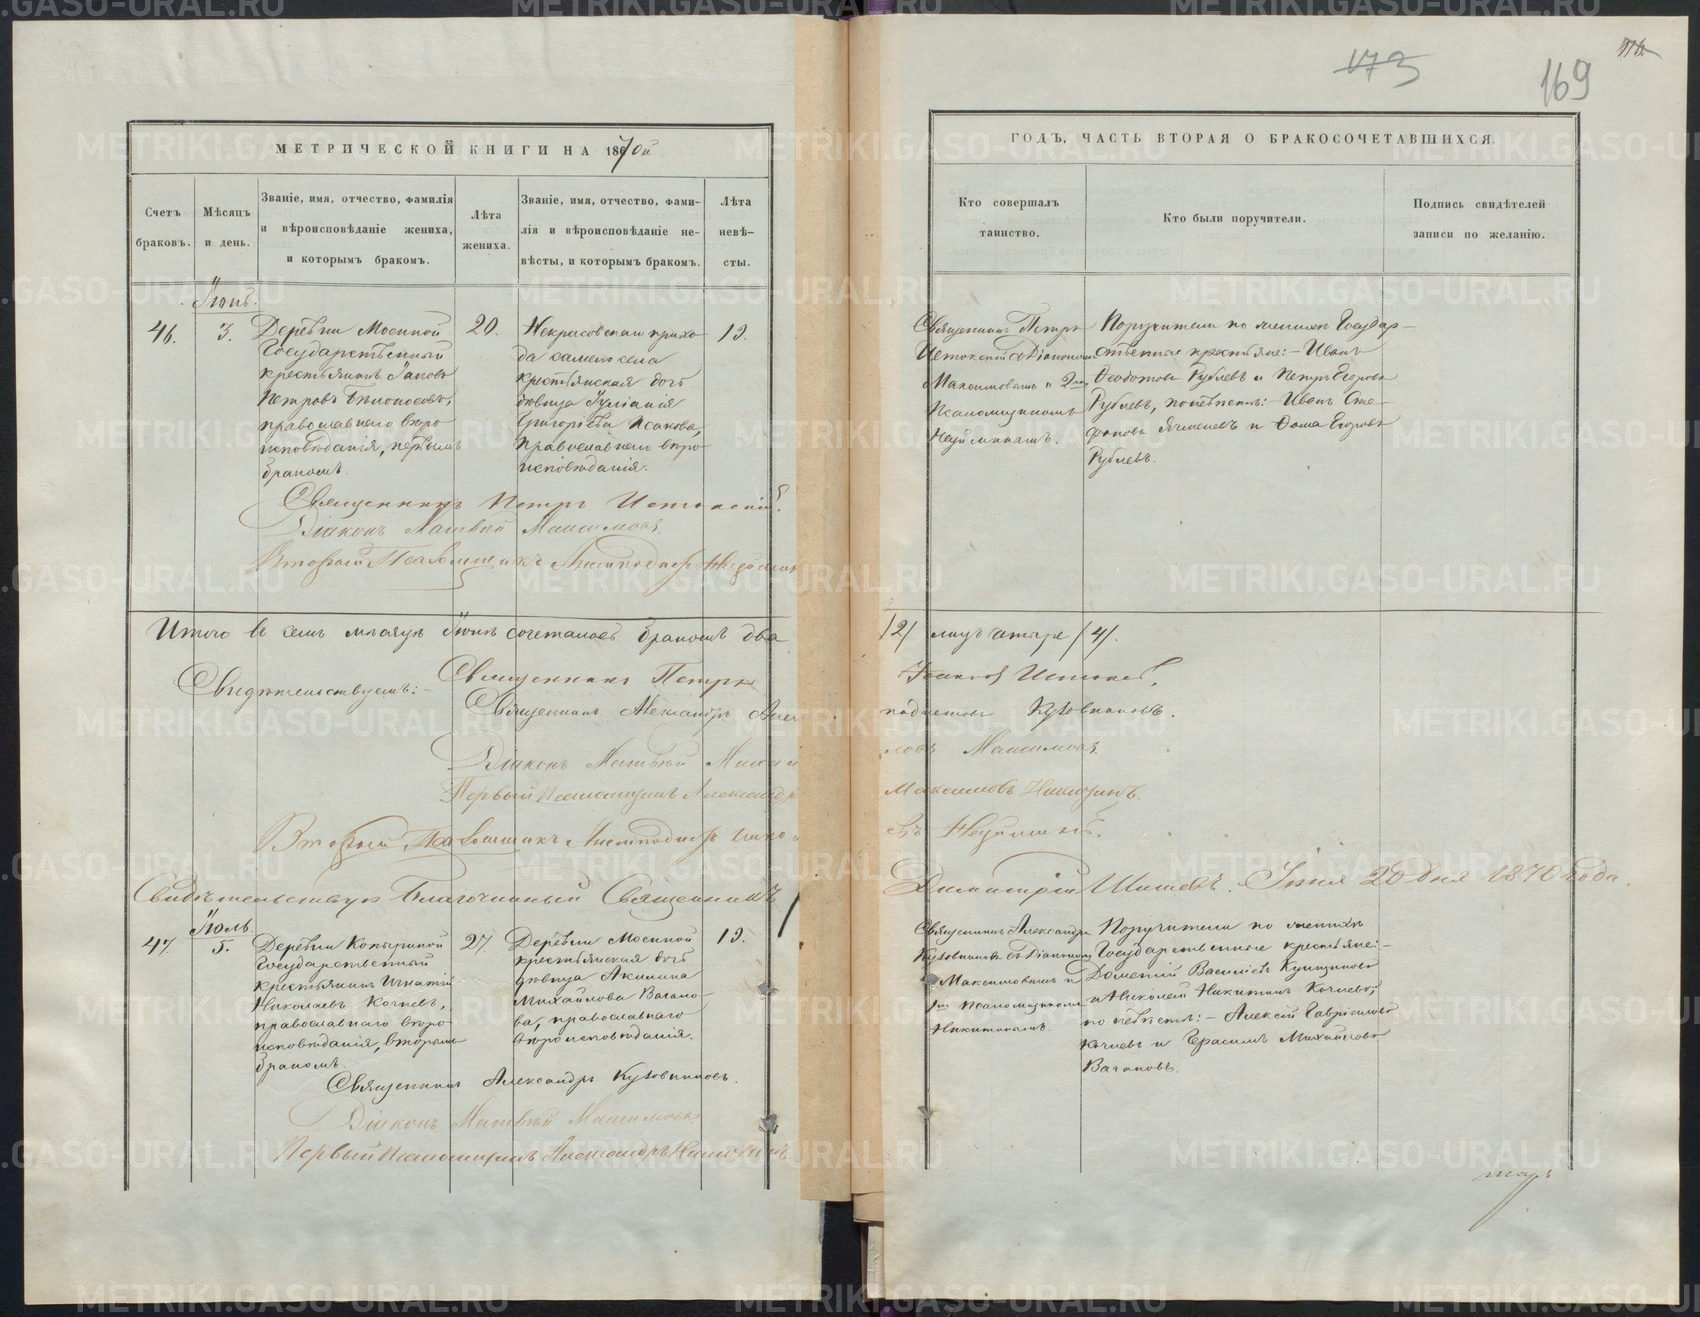 173
169
МЕТРИЧЕСКОЙ КНИГИ НА 1870й
ГОДЪ, ЧАСТЬ ВТОРАЯ О БРАКОСОЧЕТАВШИХСЯ.
Счетъ
браковъ.
Мѣсяцъ
и день.
Званіе, имя, отчество, фамилія
и вѣроисповѣданіе жениха,
и которымъ бракомъ.
Лѣта
жениха.
Званіе, имя, отчество, фами-
лія и вѣроисповѣданіе не-
вѣсты, и которымъ бракомъ.
Лѣта
невѣ-
сты.
Кто совершалъ
таинство.
Кто были поручители.
Подпись свидѣтелей
записи по желанію.
Іюнь.
46.
3.
Деревни Мосиной
Государственный
крестьянинъ Іаковъ
Петровъ Бѣлоносовъ,
православнаго вѣро
исповѣданія, первымъ
бракомъ.
20.
Некрасовскаго прихо
да села
крестьянская дочь
дѣвица Іуліанія
Григоріева Исакова,
православнаго вѣро
исповѣданія.
19.
Священникъ Петръ
Истокскій съ Діакономъ
Максимовымъ и 2мъ
Псаломщикомъ
Поручители по женихѣ Государ-
ственные крестьяне:- Иванъ
Ѳедотовъ Рублевъ и Петръ Егоровъ
Рублевъ, по невѣстѣ:- Иванъ Сте-
фановъ Ячменевъ и Ѳома Егоровъ
Рублевъ.
Священникъ Петръ Истокскій.
Діаконъ Матвѣй Максимовъ
Вторый Псаломщикъ
Итого въ семъ мѣсяцѣ Іюнѣ сочеталось бракомъ два
/2/ лицъ четыре /4/.
Свидѣтельствуемъ:-
Священникъ Петръ
Священникъ Александръ
Кузовниковъ.
Діаконъ Матвѣй
Максимовъ
Первый Псаломщикъ Александръ
Максимовъ Никитинъ.
Вторый Псаломщикъ
Свидѣтельствую Благочинный Священникъ
Димитрій Шишевъ. Іюля 20 дня 1870 года.
Іюль.
47.
5.
Деревни Копыриной
Государственный
крестьянинъ Игнатій
Николаевъ Кочневъ,
православнаго вѣро
исповѣданія, вторымъ
бракомъ.
27
Деревни Мосиной
крестьянская дочь
дѣвица Акилина
Михайлова Вагано-
ва, православнаго
вѣроисповѣданія.
19.
Священникъ Александръ
Кузовниковъ съ Діакономъ
Максимовымъ и
1мъ Псаломщикомъ
Никитинымъ.
Поручители по женихѣ
Государственные крестьяне:-
Дометій Васильевъ
и Николай Никитинъ Кочневъ,
по невѣстѣ:- Алексѣй Гавриловъ
Кочневъ и Герасимъ Михайловъ
Вагановъ.
Священникъ Александръ Кузовниковъ.
Діаконъ Матвѣй Максимовъ
Первый Псаломщикъ Александръ Никитинъ
METRIKI.GASO-URAL.RU